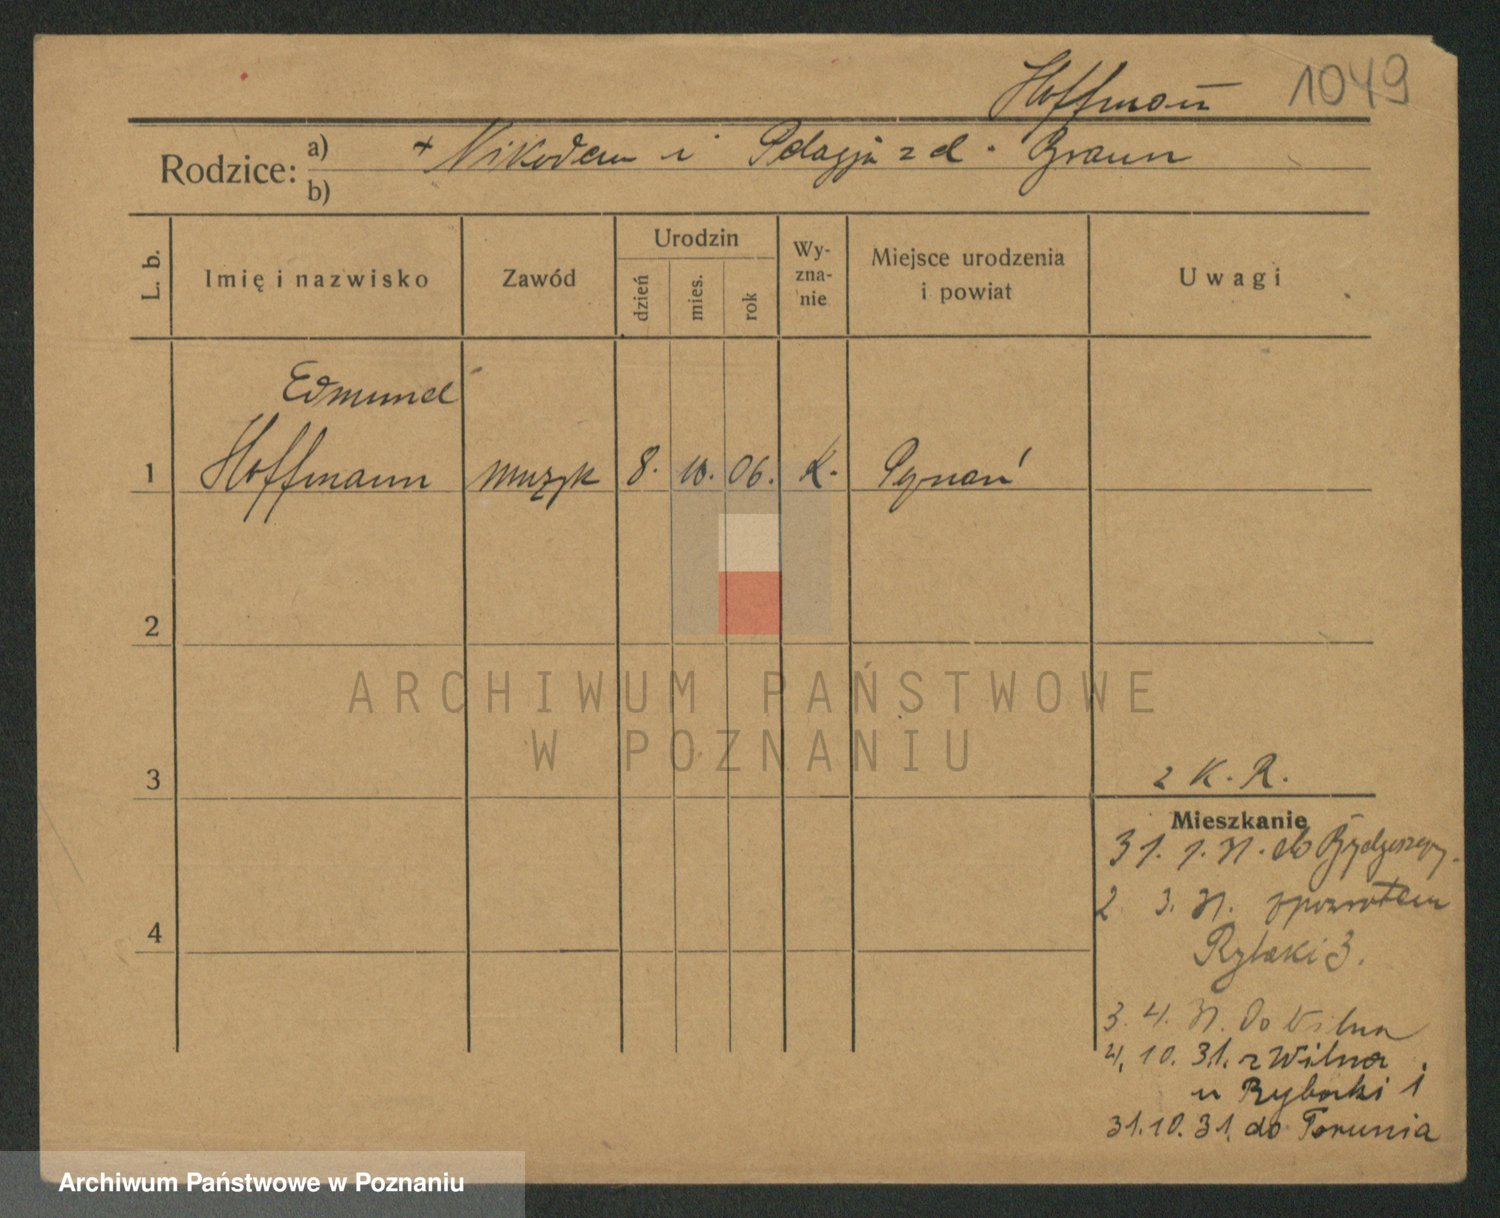 Hoffmann 1049
Rodzice: a) + Nikodem i Pelagja z d. Braun
b)
L. b. Imię i nazwisko Zawód Urodzin dzień mies. rok Wyzna-nie Miejsce urodzenia i powiat Uwagi
Edmund
1 Hoffmann muzyk 8. 10. 06. K. Poznań
2
3
z K. R.
Mieszkanie
31. 1. 31. do Bydgoszczy.
4
2. 3. 31. zpowrotem
Rybaki 3.
3. 4. 31. do Wilna
4. 10. 31. z Wilna
u Rybaki 1
31. 10. 31. do Torunia
ARCHIWUM PAŃSTWOWE
W POZNANIU
Archiwum Państwowe w Poznaniu